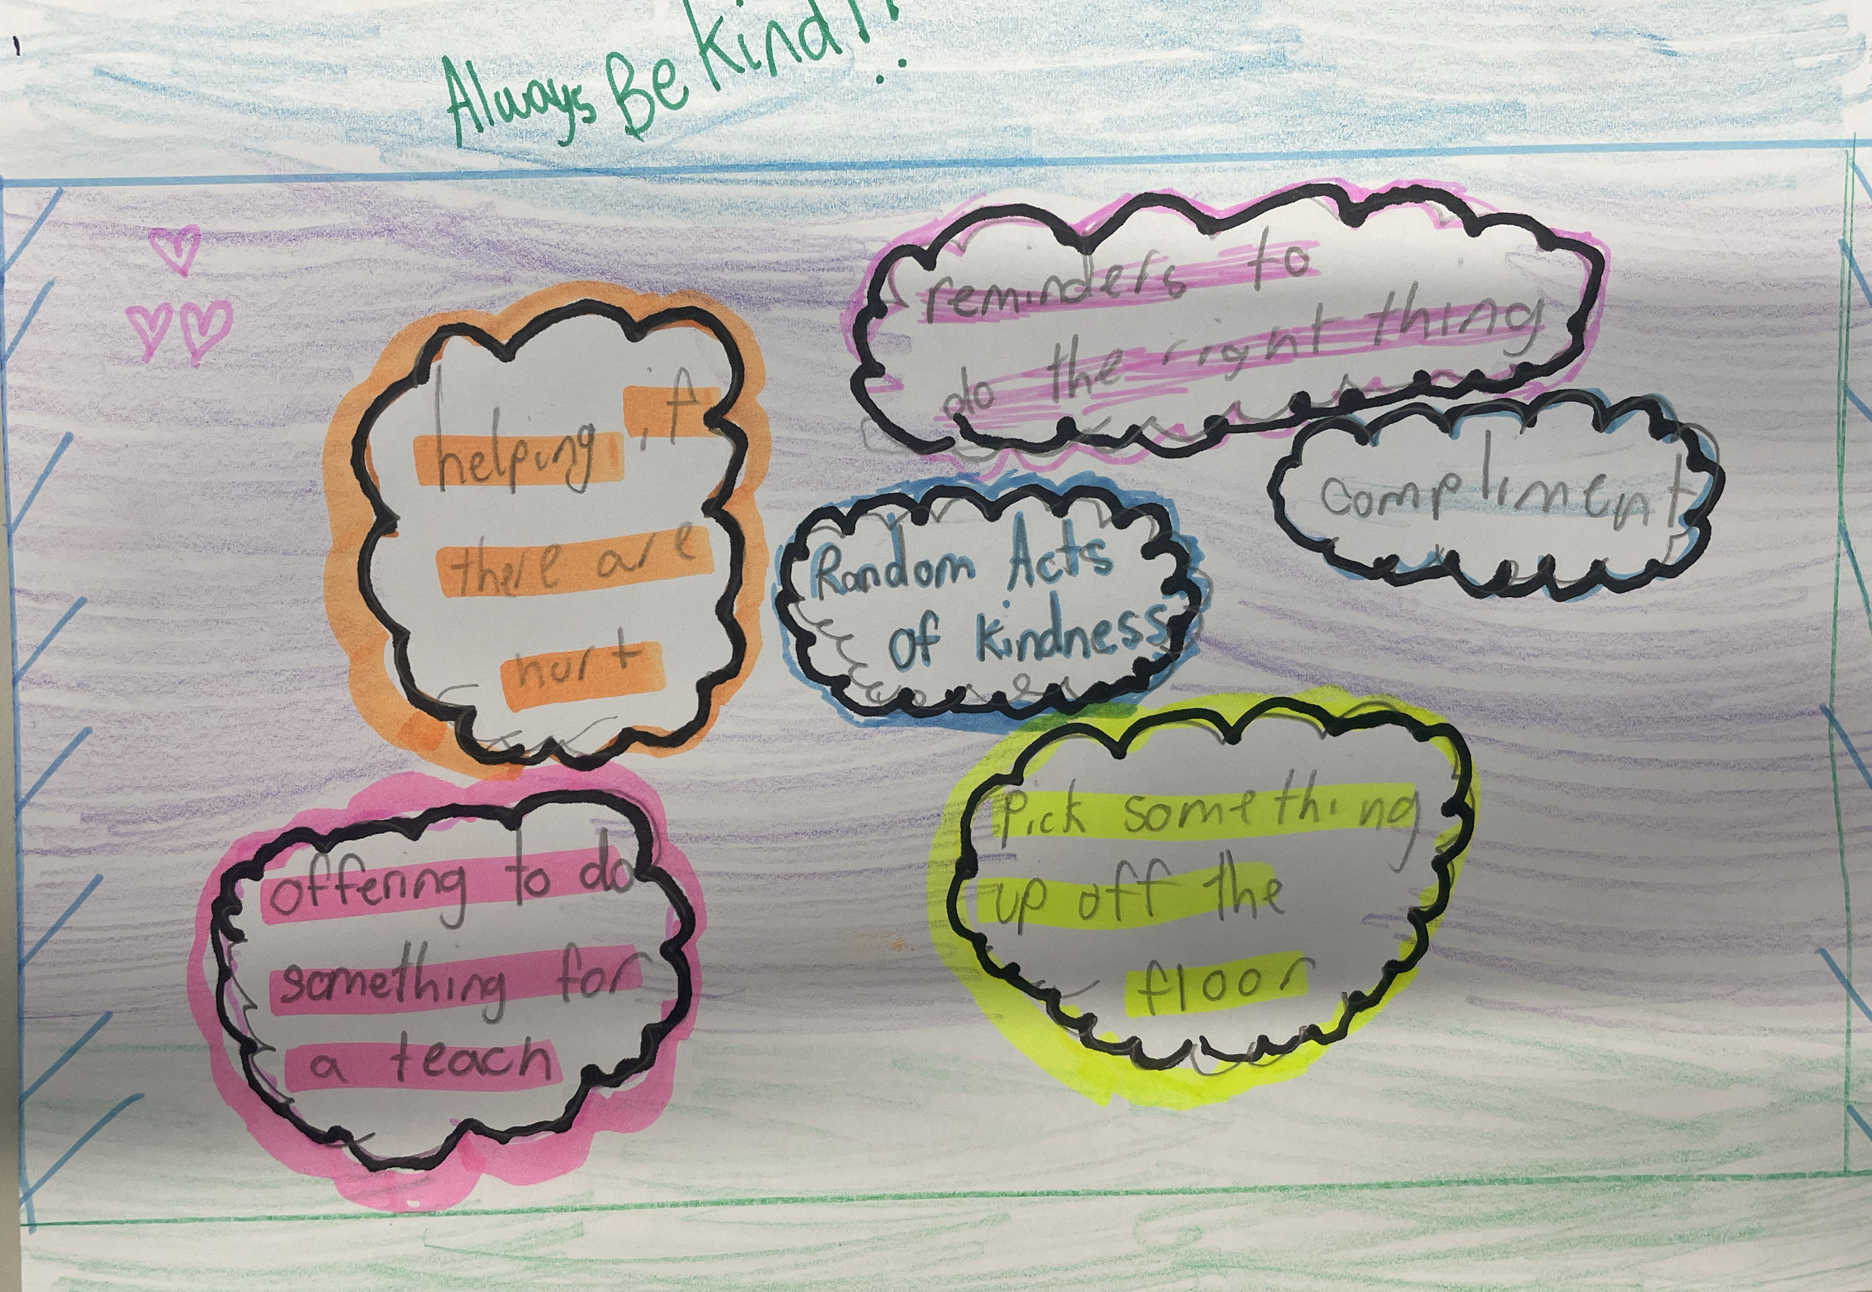 Always Be Kind!!
reminders to
do the right thing
helping if
there are
hurt
compliment
Random Acts
of kindness
pick something
up off the
floor
offering to do
something for
a teach